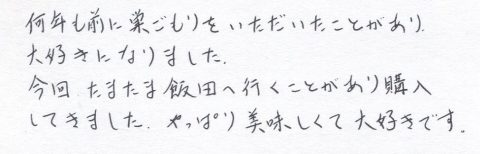 何年も前に巣ごもりをいただいたことがあり.
大好きになりました.
今回 たまたま飯田へ行くことがあり購入
してきました. やっぱり美味しくて大好きです.